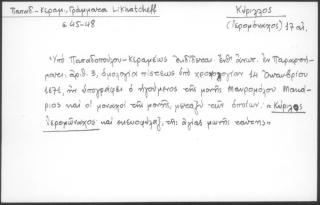 Παπαδ.-Κεραμ., Γράμματα Likhatcheff
σ. 45-48
Κύριλλος
(Ἱερομόναχος) 17 αἰ.
Ὑπὸ Παπαδοπούλου-Κεραμέως ἐκδίδεται ἔνθ' ἀνωτ. ἐν Παραρτή-
ματι, ἀρ. 3, ὁμολογία πίστεως ὑπὸ χρονολογίαν 14 Ἰανουαρίου
1671, ἣν ὑπογράφει ὁ ἡγούμενος τῆς μονῆς Μαυρομόλου Μακά-
ριος καὶ οἱ μοναχοὶ τῆς μονῆς, μεταξὺ τῶν ὁποίων: «Κύριλος
ἱερομώναχος καὶ σκευοφύλαξ τῆς ἁγίας μωνῆς ταύτης»